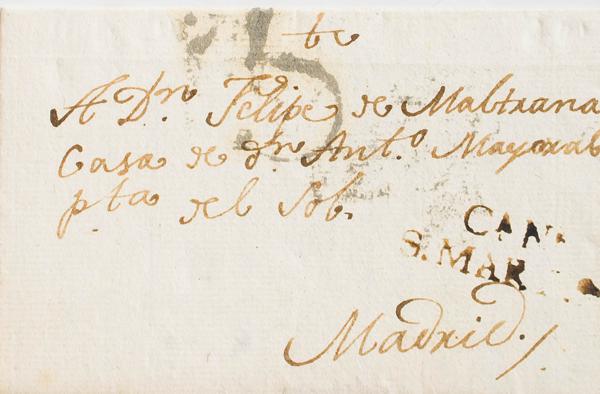 te
A Dn Felipe de Maltrana
Casa de dn Anto. Mayoral
pta del Sol.
CAN
S. MAR
Madrid.